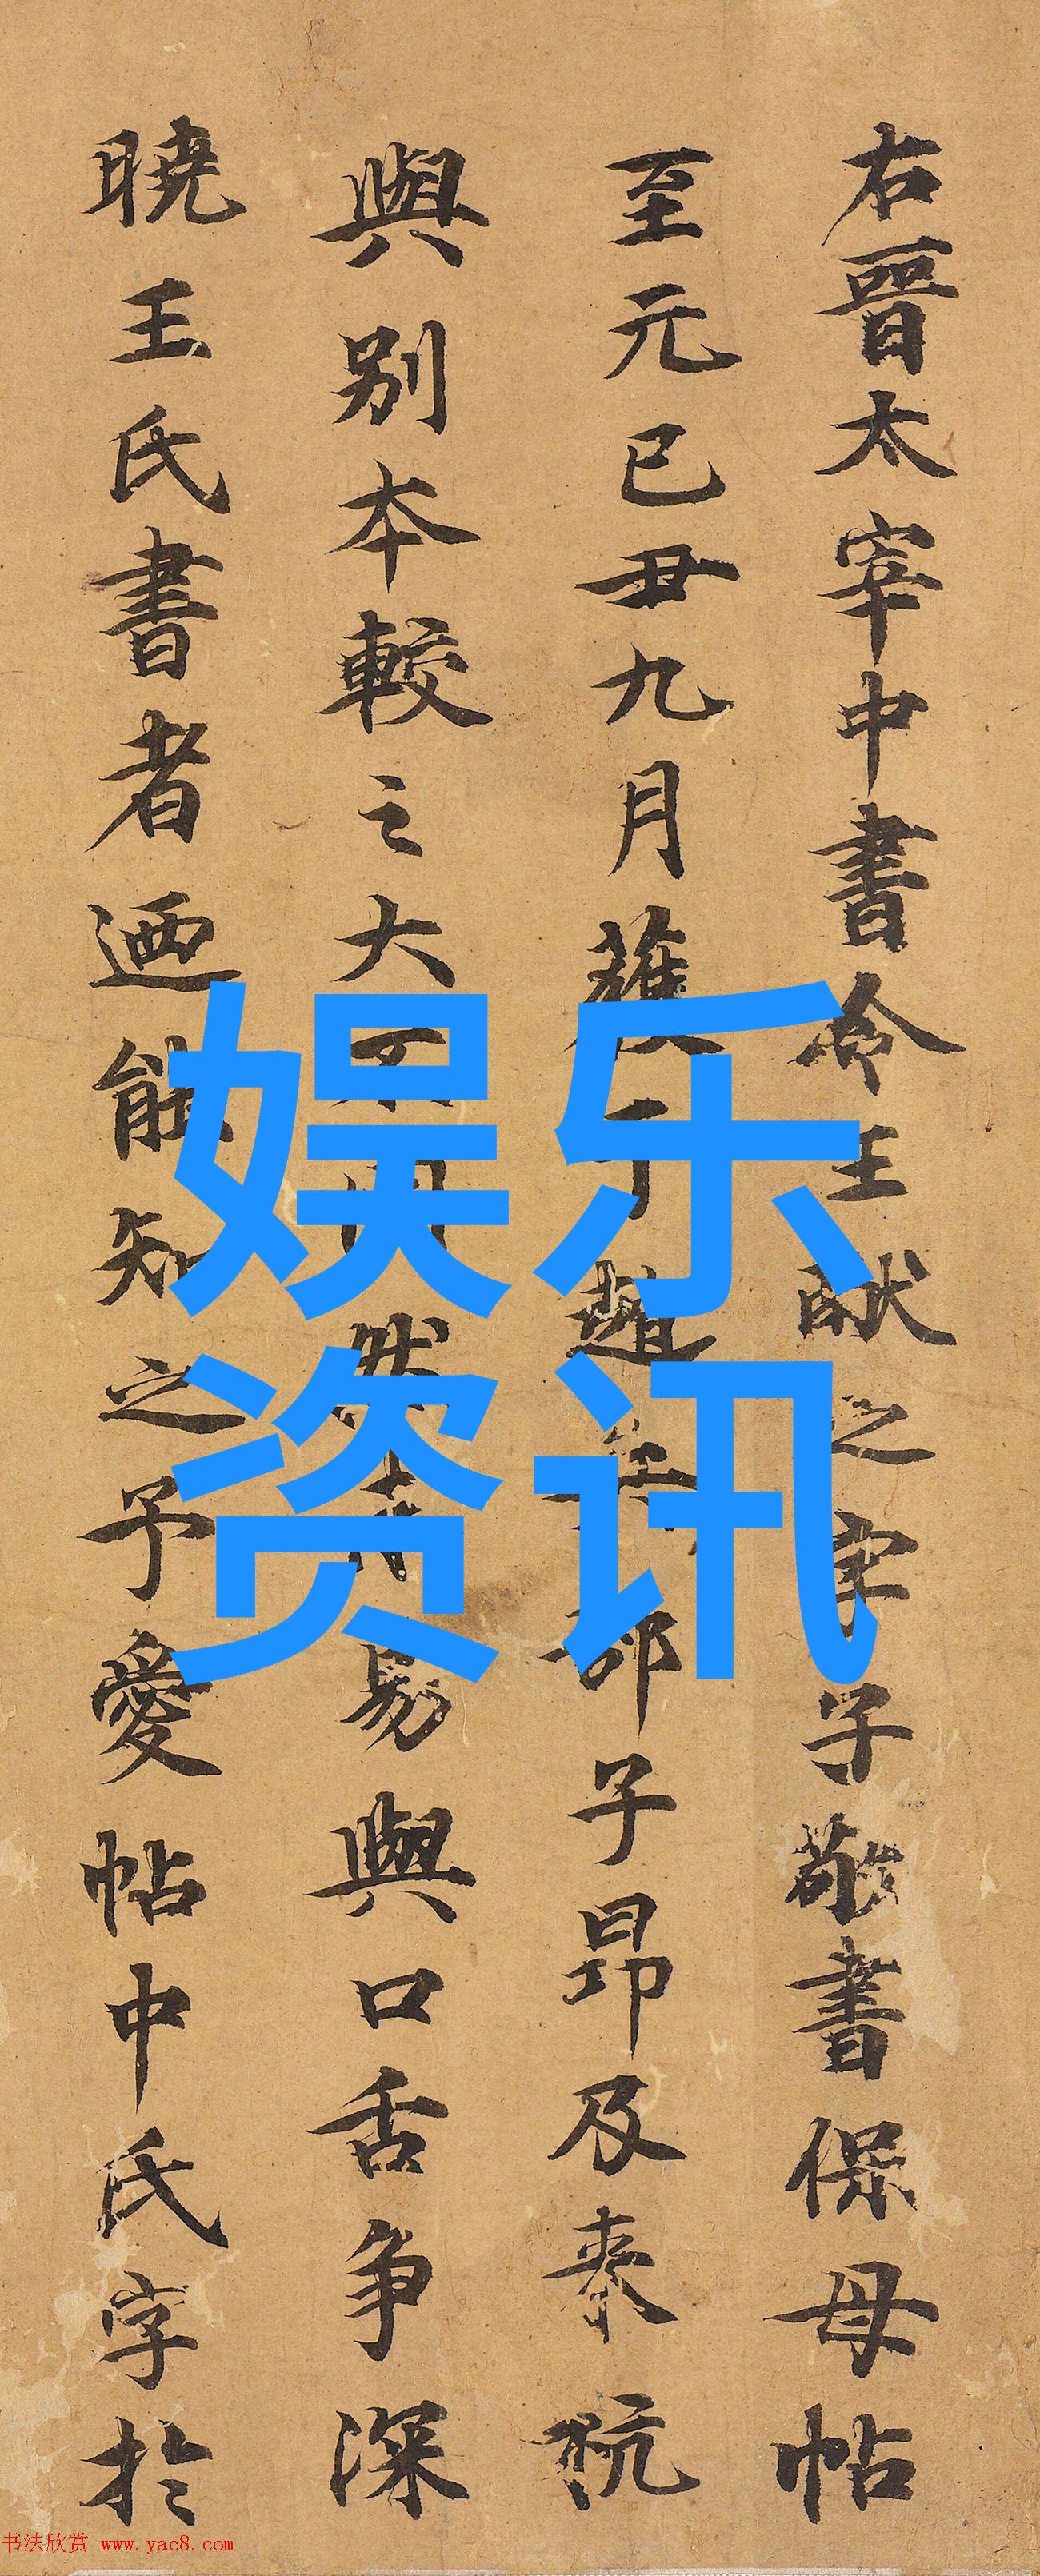 右晉太宰中書令王獻之字子敬書保母帖
至元已丑九月獲于趙兵部子昂及來杭
與別本較之大不同然未易與口舌爭深
曉王氏書者迺能知之予愛帖中氏字於
娱乐
资讯
书法欣赏 www.yac8.com